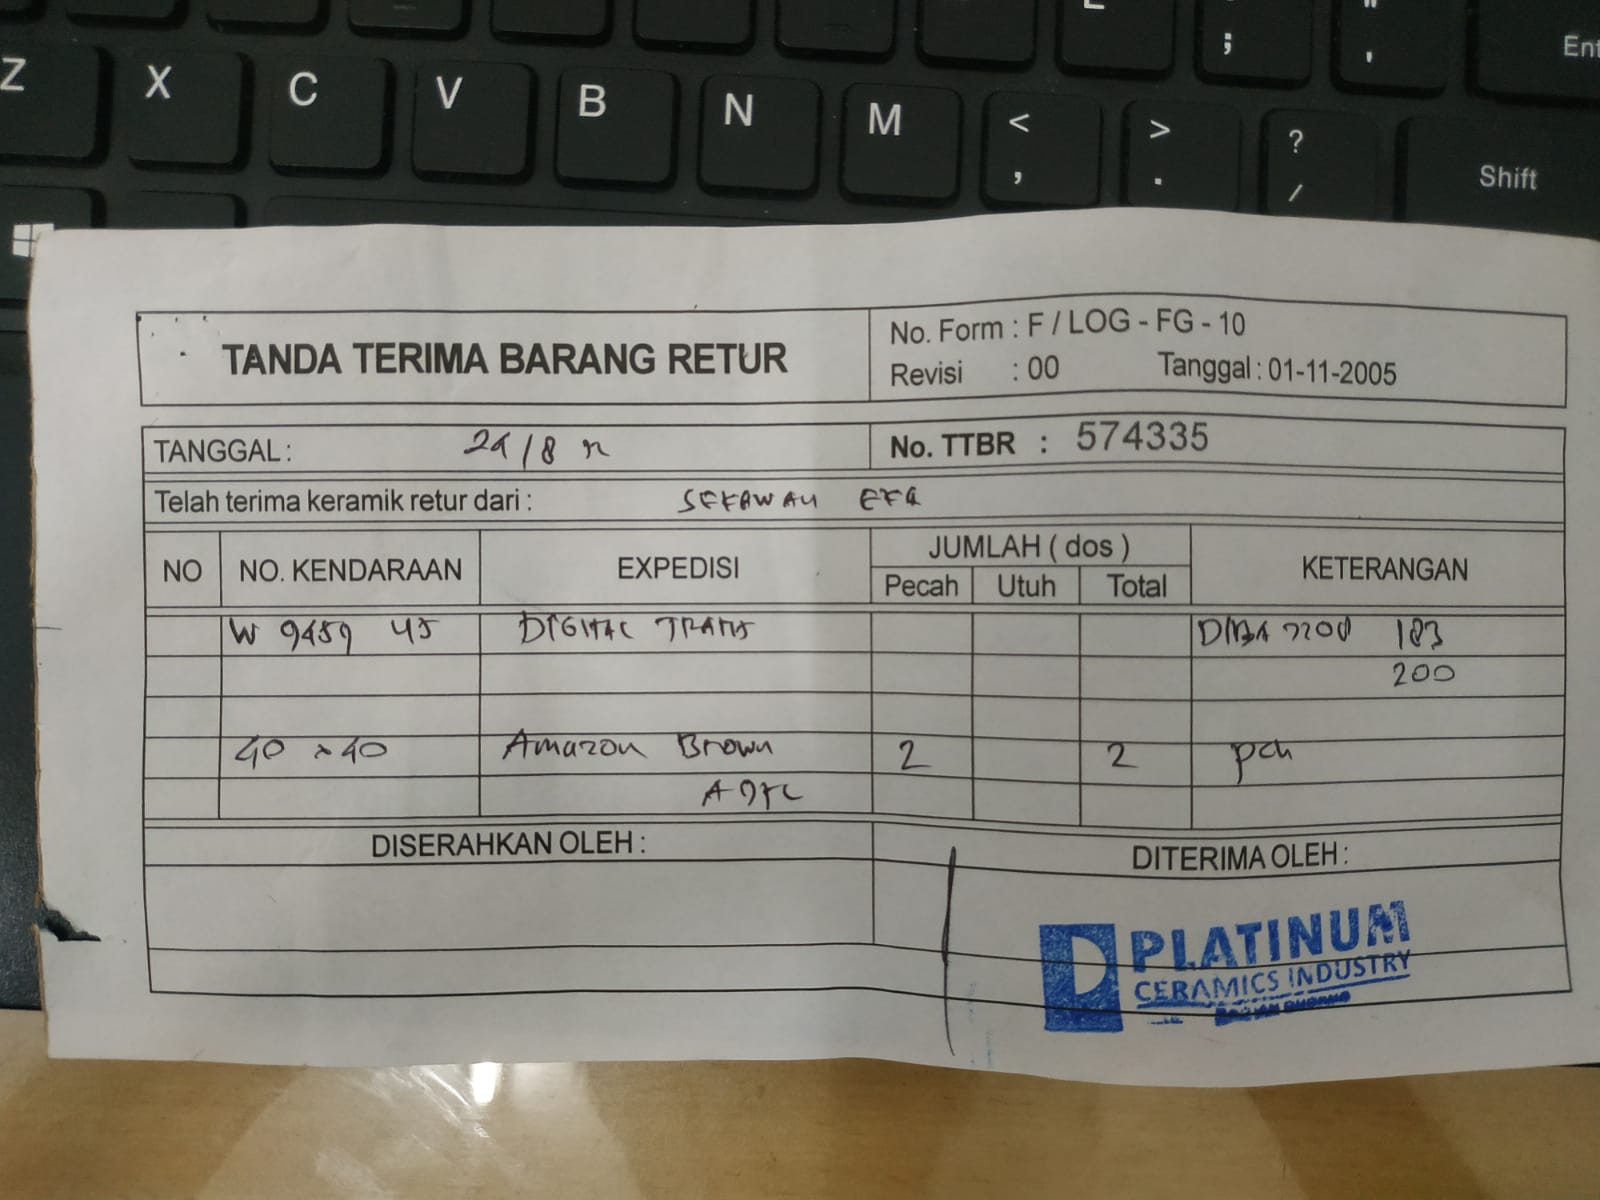 Z X C V B N M < , > . ? / Shift
; " ' Ent
TANDA TERIMA BARANG RETUR
No. Form : F / LOG - FG - 10
Revisi : 00 Tanggal : 01-11-2005
TANGGAL : /8
No. TTBR : 574335
Telah terima keramik retur dari : SEKAWAN
NO NO. KENDARAAN EXPEDISI JUMLAH ( dos ) KETERANGAN
Pecah Utuh Total
W DIGITAL TRANS 183
200
40 x 40 Amazon Brown 2 2 pch
DISERAHKAN OLEH :
DITERIMA OLEH :
PLATINUM
CERAMICS INDUSTRY